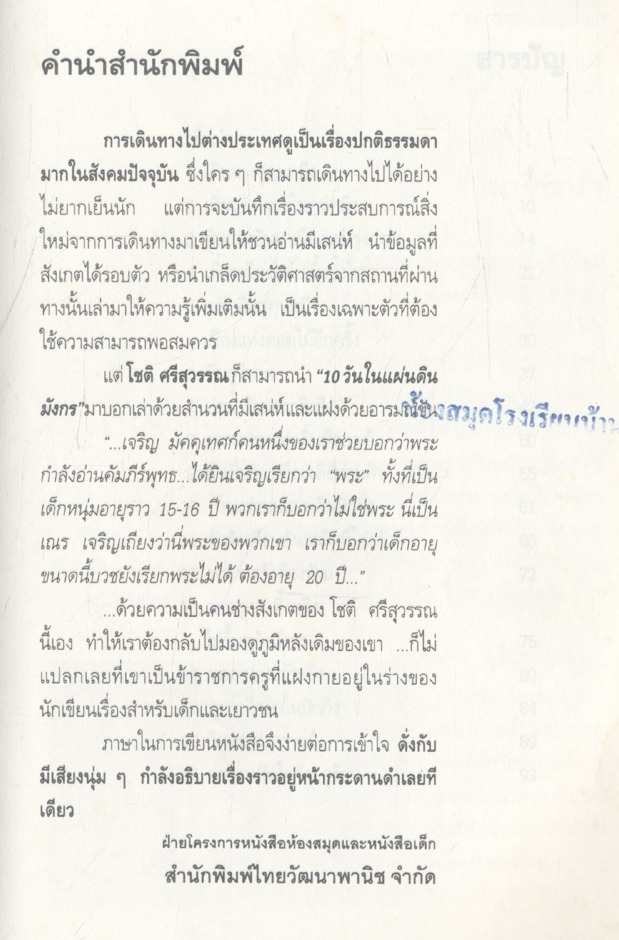 คำนำสำนักพิมพ์
การเดินทางไปต่างประเทศดูเป็นเรื่องปกติธรรมดา
มากในสังคมปัจจุบัน ซึ่งใคร ๆ ก็สามารถเดินทางไปได้อย่าง
ไม่ยากเย็นนัก แต่การจะบันทึกเรื่องราวประสบการณ์สิ่ง
ใหม่จากการเดินทางมาเขียนให้ชวนอ่านมีเสน่ห์ นำข้อมูลที่
สังเกตได้รอบตัว หรือนำเกล็ดประวัติศาสตร์จากสถานที่ผ่าน
ทางนั้นเล่ามาให้ความรู้เพิ่มเติมนั้น เป็นเรื่องเฉพาะตัวที่ต้อง
ใช้ความสามารถพอสมควร
แต่ โชติ ศรีสุวรรณ ก็สามารถนำ “10 วันในแผ่นดิน
มังกร”มาบอกเล่าด้วยสำนวนที่มีเสน่ห์และแฝงด้วยอารมณ์ขัน
ห้องสมุดโรงเรียนบ้าน
“...เจริญ มัคคุเทศก์คนหนึ่งของเราช่วยบอกว่าพระ
กำลังอ่านคัมภีร์พุทธ...ได้ยินเจริญเรียกว่า “พระ” ทั้งที่เป็น
เด็กหนุ่มอายุราว 15-16 ปี พวกเราก็บอกว่าไม่ใช่พระ นี่เป็น
เณร เจริญเถียงว่านี่พระของพวกเขา เราก็บอกว่าเด็กอายุ
ขนาดนี้บวชยังเรียกพระไม่ได้ ต้องอายุ 20 ปี...”
...ด้วยความเป็นคนช่างสังเกตของ โชติ ศรีสุวรรณ
นี้เอง ทำให้เราต้องกลับไปมองดูภูมิหลังเดิมของเขา ...ก็ไม่
แปลกเลยที่เขาเป็นข้าราชการครูที่แฝงกายอยู่ในร่างของ
นักเขียนเรื่องสำหรับเด็กและเยาวชน
ภาษาในการเขียนหนังสือจึงง่ายต่อการเข้าใจ ดั่งกับ
มีเสียงนุ่ม ๆ กำลังอธิบายเรื่องราวอยู่หน้ากระดานดำเลยที
เดียว
ฝ่ายโครงการหนังสือห้องสมุดและหนังสือเด็ก
สำนักพิมพ์ไทยวัฒนาพานิช จำกัด